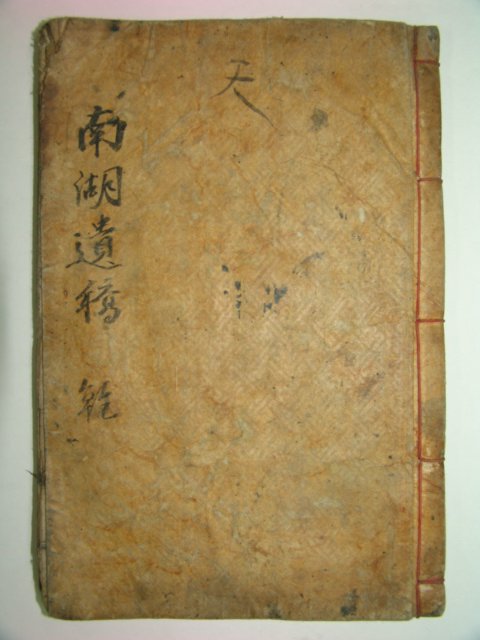 天
南湖遺稿 乾